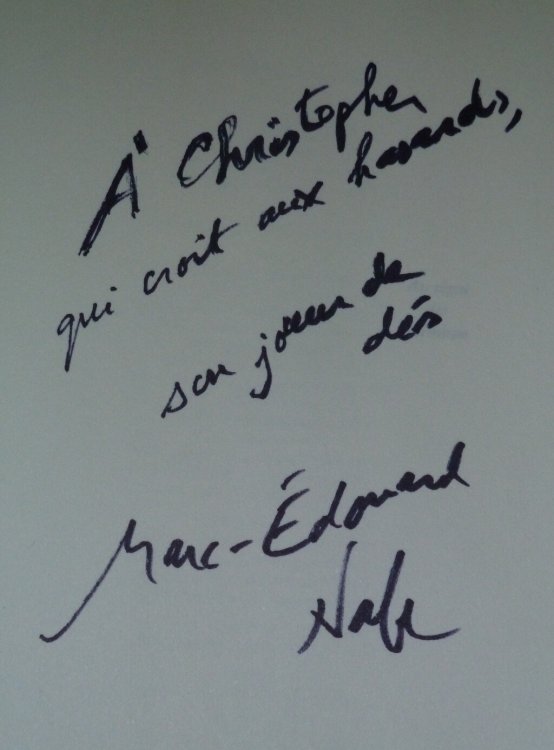 À Christopher
qui croit aux hasards,
son joueur de
dés
Marc-Édouard
Nabe